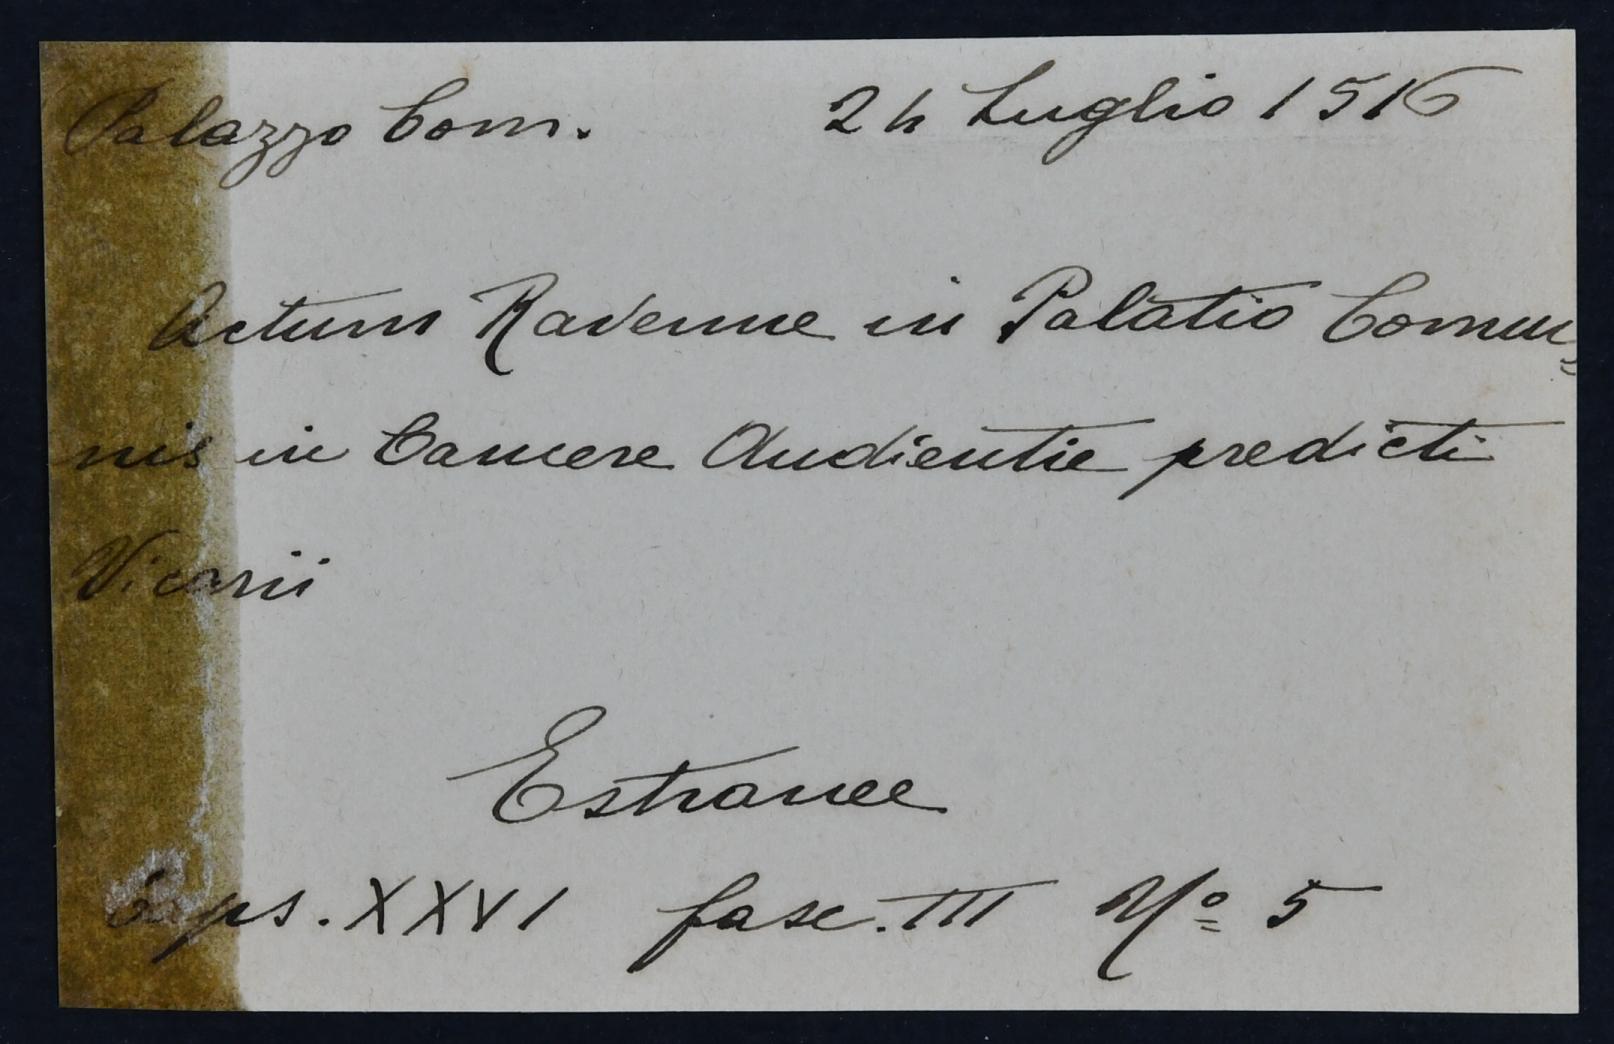 Palazzo Com. 24 Luglio 1516
Actum Ravenne in Palatio Comu=
nis in Camere Audientie predicti
Vicarii
Estranee
Caps. XXVI fasc. III Nº 5